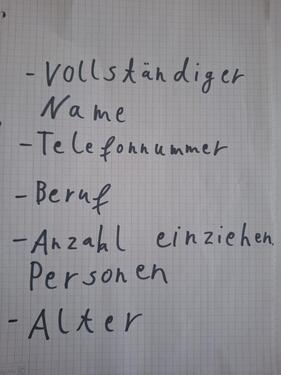 - Vollständiger
Name
- Telefonnummer
- Beruf
- Anzahl einziehen
Personen
- Alter